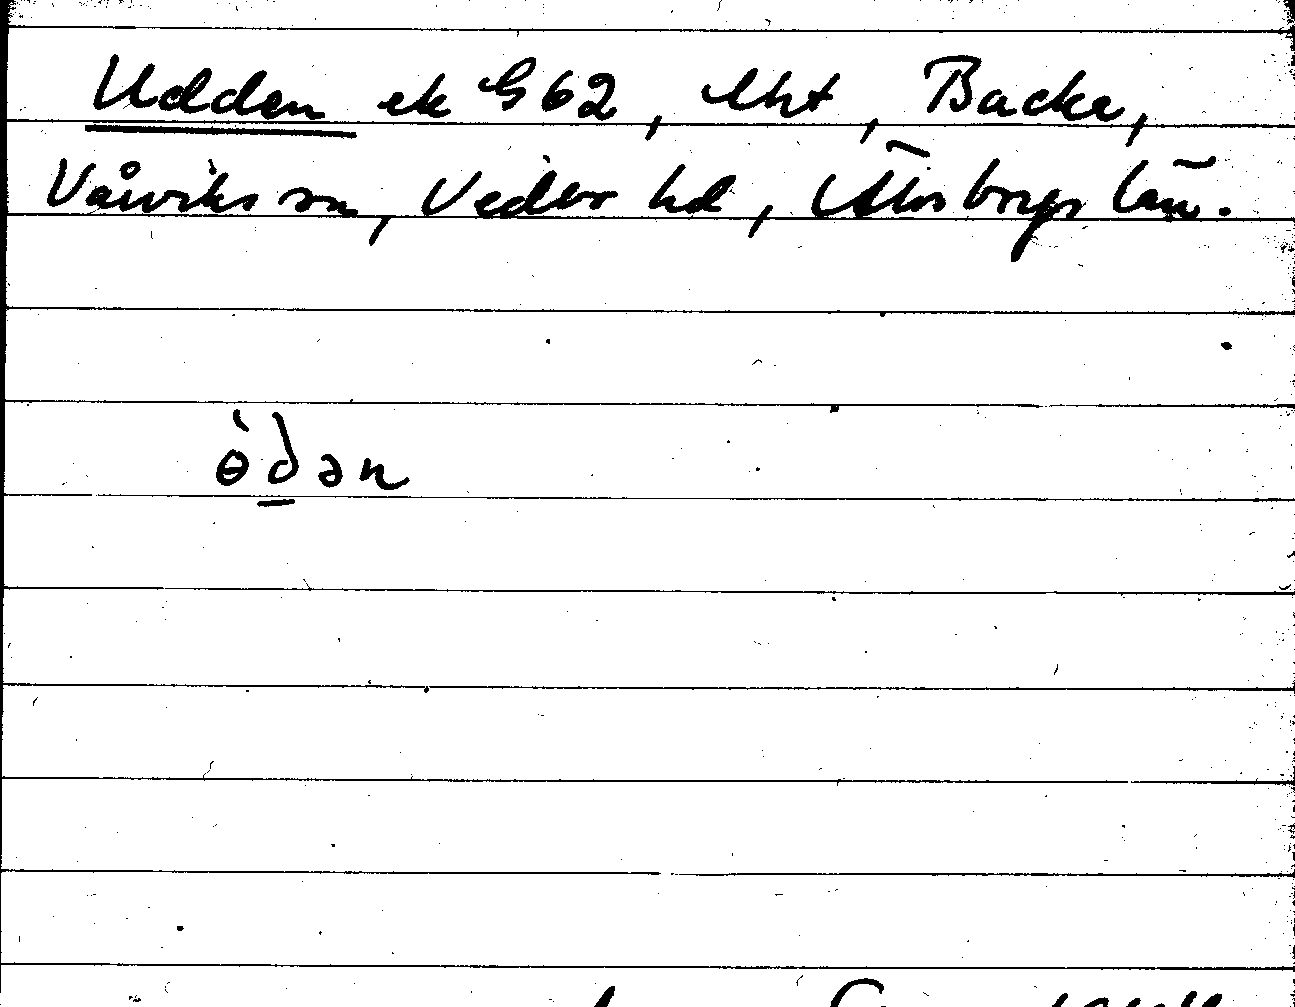 Udden ek G62, lht, Backe,
Vårviks sn, Vedbo hd, Älvsborgs län.
ɵ̀dən